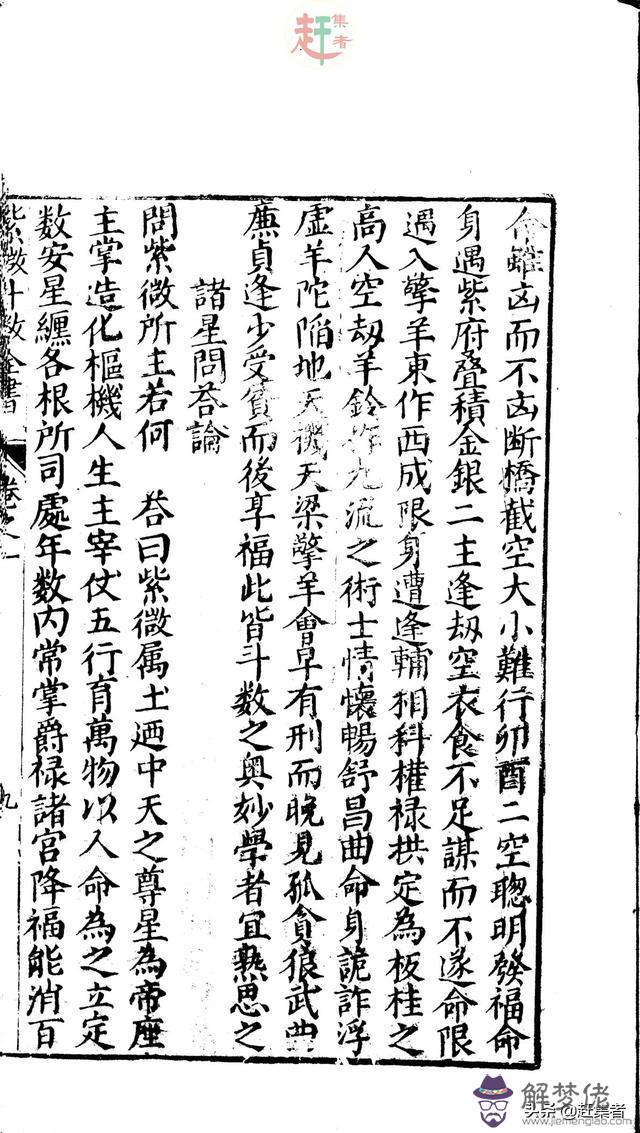 赶集者
命雖凶而不凶断橋截空大小難行卯酉二空聰明發福命
身遇紫府叠積金銀二主逢劫空衣食不足謀而不遂命限
遇入擎羊東作西成限身遭逢輔相科權禄拱定為板桂之
高人空劫羊鈴作九流之術士情懷暢舒昌曲命身詭詐浮
虚羊陀陷地天機天梁擎羊會早有刑而晚見孤貪狼武曲
廉貞逢少受貧而後享福此皆斗数之奥妙學者宜熟思之
諸星問荅論
問紫微所主若何 荅曰紫微属土迺中天之尊星為帝座
主掌造化樞機人生主宰仗五行育萬物以人命為之立定
数安星纏各根所司處年数内常掌爵禄諸宮降福能消百
紫微斗数全書 卷之一 九
解梦佬
www.jiemenglao.com
头条@赶集者